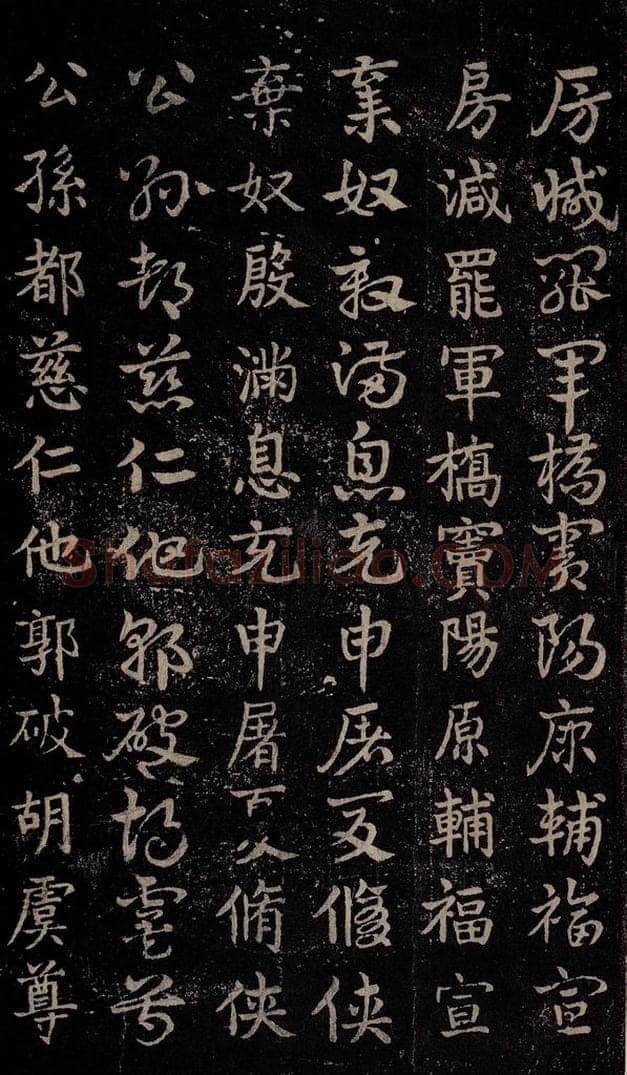 房減罷軍橋竇陽原輔福宣
房減罷軍橋竇陽原輔福宣
棄奴殷滿息充申屠夏脩俠
棄奴殷滿息充申屠夏脩俠
公孫都慈仁他郭破胡虞尊
公孫都慈仁他郭破胡虞尊
Shufaziliao.COM